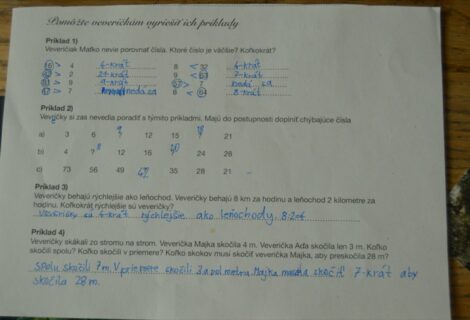 Pomôžte veveričkám vyriešiť ich príklady
Príklad 1)
Veveričiak Maťko nevie porovnať čísla. Ktoré číslo je väčšie? Koľkokrát?
16 > 4 4-krát 8 < 32 4-krát
> 2 9 < 63 7-krát
> 9 > 7 nedá sa
> 7 nedá sa 8 < 64 8-krát
Príklad 2)
Veveričky si zas nevedia poradiť s týmito príkladmi. Majú do postupnosti doplniť chýbajúce čísla
a) 3 6 9 12 15 18 21
b) 4 ? 8 12 16 20 24 28
c) 73 56 49 42 35 28 21
Príklad 3)
Veveričky behajú rýchlejšie ako leňochod. Veveričky behajú 8 km za hodinu a leňochod 2 kilometre za
hodinu. Koľkokrát rýchlejšie sú veveričky?
Veveričky sú 4-krát rýchlejšie ako leňochody. 8:2=4
Príklad 4)
Veveričky skákali zo stromu na strom. Veverička Majka skočila 4 m. Veverička Ada skočila len 3 m. Koľko
skočili spolu? Koľko skočili v priemere? Koľko skokov musí skočiť veverička Majka, aby preskočila 28 m?
Spolu skočili 7m. V priemere skočili 3 a pol metra. Majka musela skočiť 7-krát aby
skočila 28 m.